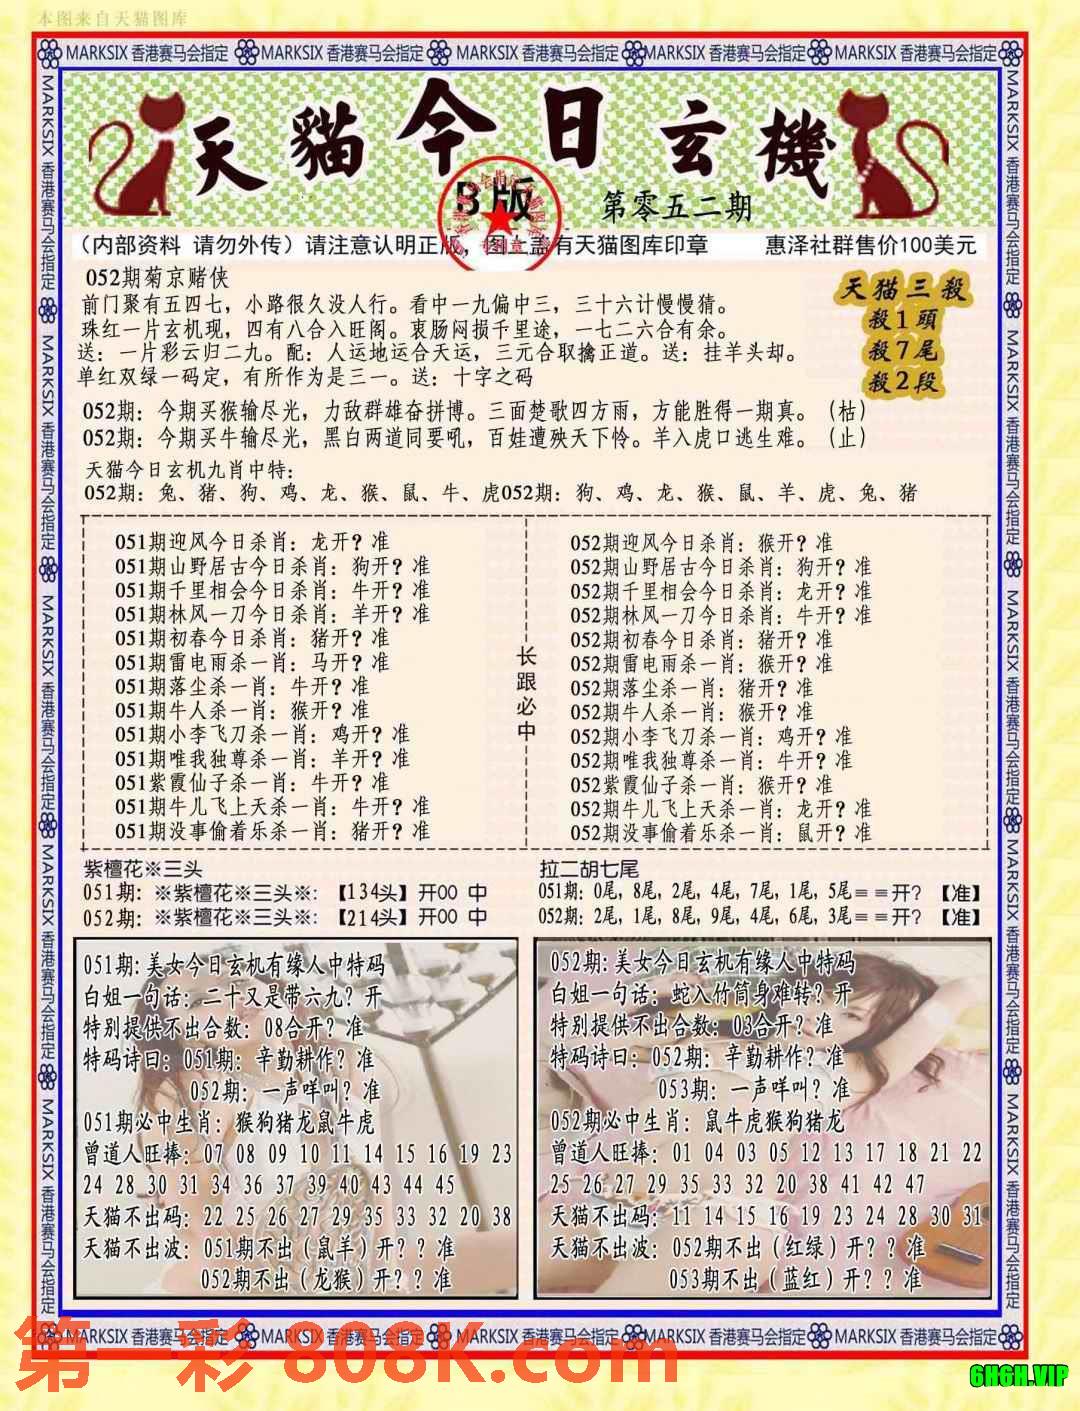 本图来自天猫图库
MARKSIX 香港赛马会指定 MARKSIX 香港赛马会指定 MARKSIX 香港赛马会指定 MARKSIX 香港赛马会指定 MARKSIX 香港赛马会指定
天貓今日玄機
B版
第零五二期
(内部资料 请勿外传) 请注意认明正版，图上盖有天猫图库印章 惠泽社群售价100美元
052期菊京赌侠
前门聚有五四七，小路很久没人行。看中一九偏中三，三十六计慢慢猜。
珠红一片玄机现，四有八合入旺阁。衷肠闷损千里途，一七二六合有余。
送：一片彩云归二九。配：人运地运合天运，三元合取擒正道。送：挂羊头却。
单红双绿一码定，有所作为是三一。送：十字之码
天猫三殺
殺1頭
殺7尾
殺2段
052期：今期买猴输尽光，力敌群雄奋拼博。三面楚歌四方雨，方能胜得一期真。（枯）
052期：今期买牛输尽光，黑白两道同要吼，百姓遭殃天下怜。羊入虎口逃生难。（止）
天猫今日玄机九肖中特：
052期：兔、猪、狗、鸡、龙、猴、鼠、牛、虎052期：狗、鸡、龙、猴、鼠、羊、虎、兔、猪
051期迎风今日杀肖：龙开？准
051期山野居古今日杀肖：狗开？准
051期千里相会今日杀肖：牛开？准
051期林风一刀今日杀肖：羊开？准
051期初春今日杀肖：猪开？准
051期雷电雨杀一肖：马开？准
051期落尘杀一肖：牛开？准
051期牛人杀一肖：猴开？准
051期小李飞刀杀一肖：鸡开？准
051期唯我独尊杀一肖：羊开？准
051紫霞仙子杀一肖：牛开？准
051期牛儿飞上天杀一肖：牛开？准
051期没事偷着乐杀一肖：猪开？准
长跟必中
052期迎风今日杀肖：猴开？准
052期山野居古今日杀肖：狗开？准
052期千里相会今日杀肖：龙开？准
052期林风一刀今日杀肖：牛开？准
052期初春今日杀肖：猪开？准
052期雷电雨杀一肖：猴开？准
052期落尘杀一肖：猪开？准
052期牛人杀一肖：猴开？准
052期小李飞刀杀一肖：鸡开？准
052期唯我独尊杀一肖：牛开？准
052紫霞仙子杀一肖：猴开？准
052期牛儿飞上天杀一肖：龙开？准
052期没事偷着乐杀一肖：鼠开？准
紫檀花※三头
051期：※紫檀花※三头※：【134头】开00 中
052期：※紫檀花※三头※：【214头】开00 中
拉二胡七尾
051期：0尾，8尾，2尾，4尾，7尾，1尾，5尾==开？【准】
052期：2尾，1尾，8尾，9尾，4尾，6尾，3尾==开？【准】
051期:美女今日玄机有缘人中特码
白姐一句话：二十又是带六九？开
特别提供不出合数：08合开？准
特码诗曰：051期：辛勤耕作？准
052期：一声咩叫？准
051期必中生肖：猴狗猪龙鼠牛虎
曾道人旺捧：07 08 09 10 11 14 15 16 19 23
24 28 30 31 34 36 37 39 40 43 44 45
天猫不出码：22 25 26 27 29 35 33 32 20 38
天猫不出波：051期不出（鼠羊）开？？准
052期不出（龙猴）开？？准
052期:美女今日玄机有缘人中特码
白姐一句话：蛇入竹筒身难转？开
特别提供不出合数：03合开？准
特码诗曰：052期：辛勤耕作？准
053期：一声咩叫？准
052期必中生肖：鼠牛虎猴狗猪龙
曾道人旺捧：01 04 03 05 12 13 17 18 21 22
25 26 27 29 35 33 32 20 38 41 42 47
天猫不出码：11 14 15 16 19 23 24 28 30 31
天猫不出波：052期不出（红绿）开？？准
053期不出（蓝红）开？？准
MARKSIX 香港赛马会指定 MARKSIX 香港赛马会指定 MARKSIX 香港赛马会指定 MARKSIX 香港赛马会指定 MARKSIX 香港赛马会指定
第一彩 808K.com
6HGH.VIP